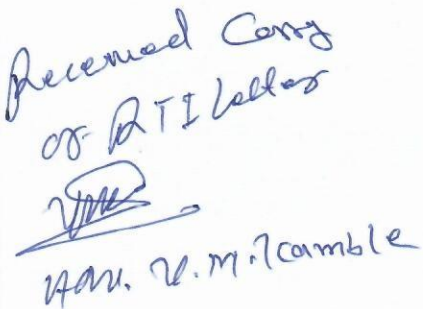 Received Copy
of RTI Letter
Adv. V. M. Kamble